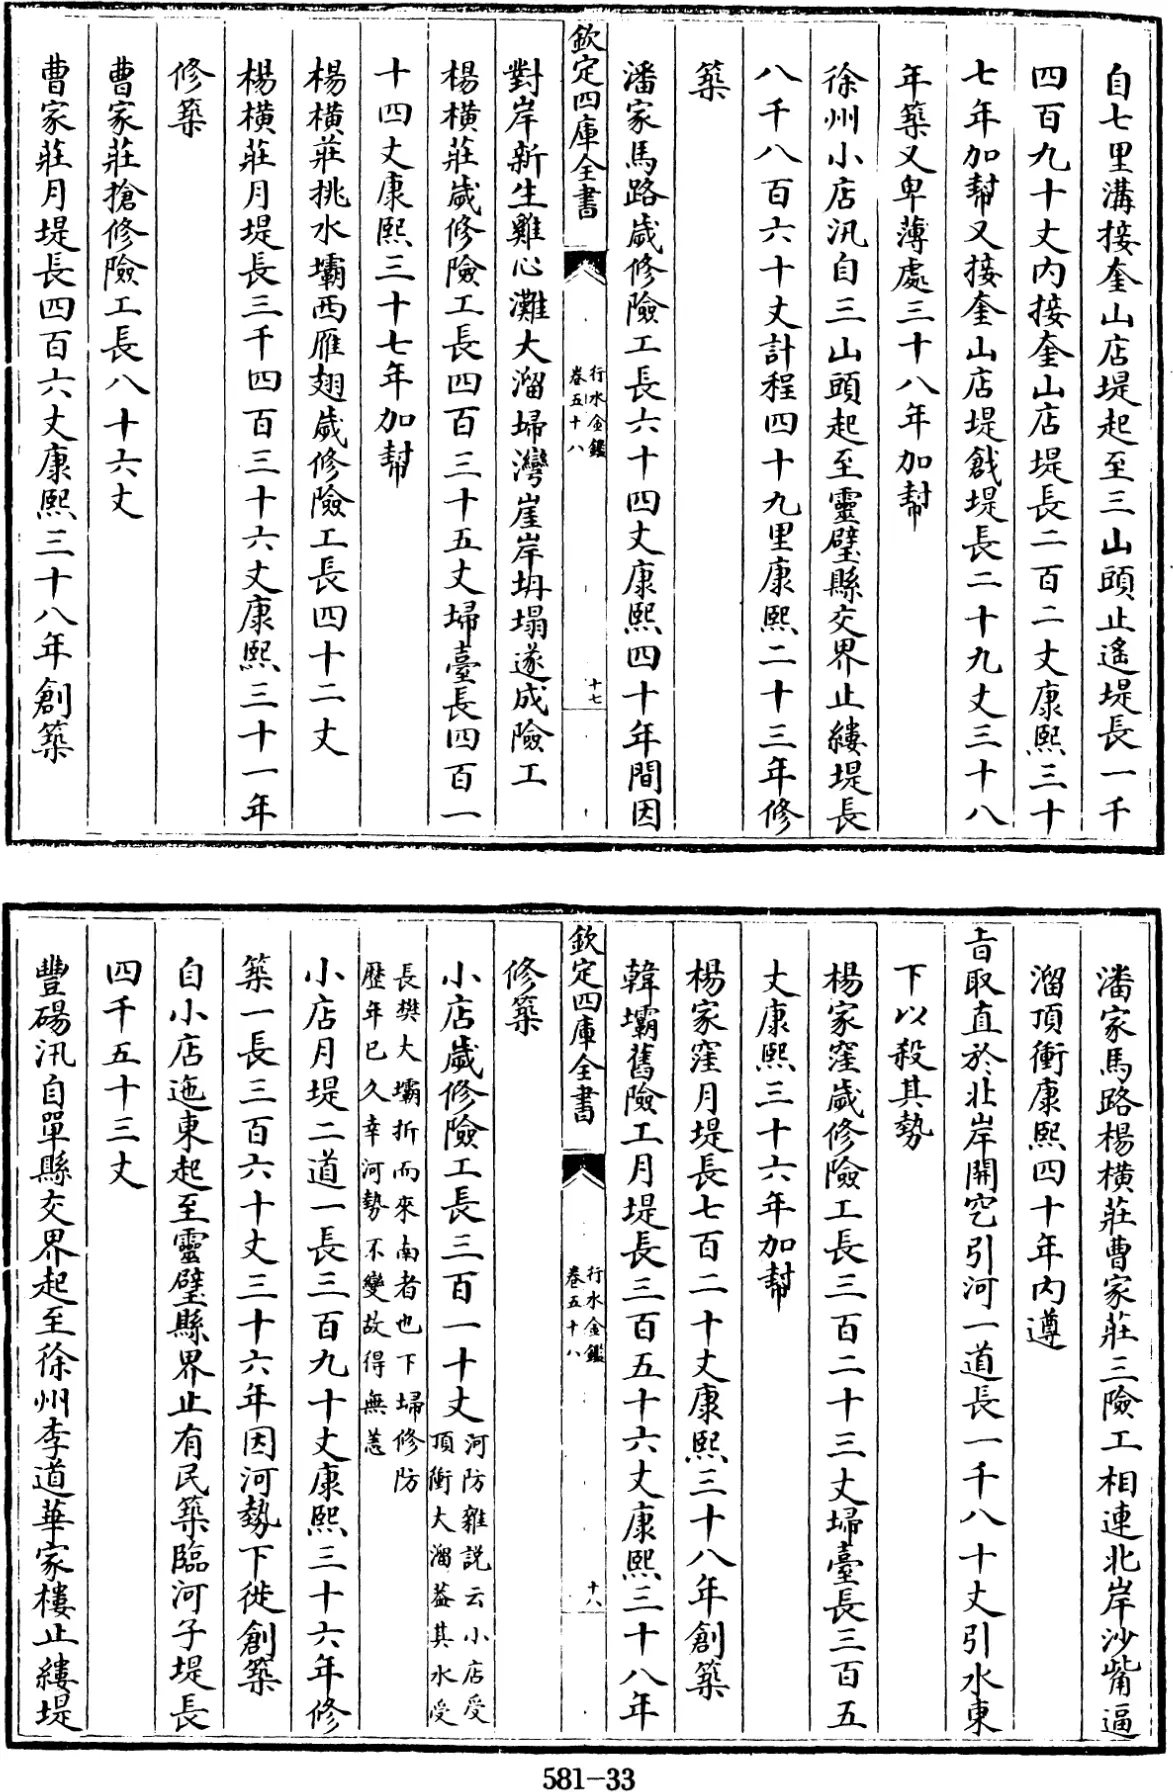 自七里溝接奎山店堤起至三山頭止遙堤長一千
四百九十丈内接奎山店堤長二百二丈康熙三十
七年加幫又接奎山店堤戧堤長二十九丈三十八
年築又卑薄處三十八年加幫
徐州小店汛自三山頭起至靈璧縣交界止縷堤長
八千八百六十丈計程四十九里康熙二十三年修
築
潘家馬路歲修險工長六十四丈康熙四十年間因
欽定四庫全書
行水金鑑
卷五十八
十七
對岸新生雞心灘大溜埽灣崖岸坍塌遂成險工
楊橫莊歲修險工長四百三十五丈埽臺長四百一
十四丈康熙三十七年加幫
楊橫莊挑水壩西雁翅歲修險工長四十二丈
楊橫莊月堤長三千四百三十六丈康熙三十一年
修築
曹家莊搶修險工長八十六丈
曹家莊月堤長四百六丈康熙三十八年創築
潘家馬路楊橫莊曹家莊三險工相連北岸沙嘴逼
溜頂衝康熙四十年内遵
旨取直於北岸開空引河一道長一千八十丈引水東
下以殺其勢
楊家窪歲修險工長三百二十三丈埽臺長三百五
丈康熙三十六年加幫
楊家窪月堤長七百二十丈康熙三十八年創築
韓壩舊險工月堤長三百五十六丈康熙三十八年
欽定四庫全書
行水金鑑
卷五十八
十八
修築
小店歲修險工長三百一十丈
河防雜説云小店受
頂衝大溜葢其水受
長樊大壩折而來南者也下埽修防
歷年已久幸河勢不變故得無恙
小店月堤二道一長三百九十丈康熙三十六年修
築一長三百六十丈三十六年因河勢下徙創築
自小店迤東起至靈璧縣界止有民築臨河子堤長
四千五十三丈
豐碭汛自單縣交界起至徐州李道華家樓止縷堤
581-33